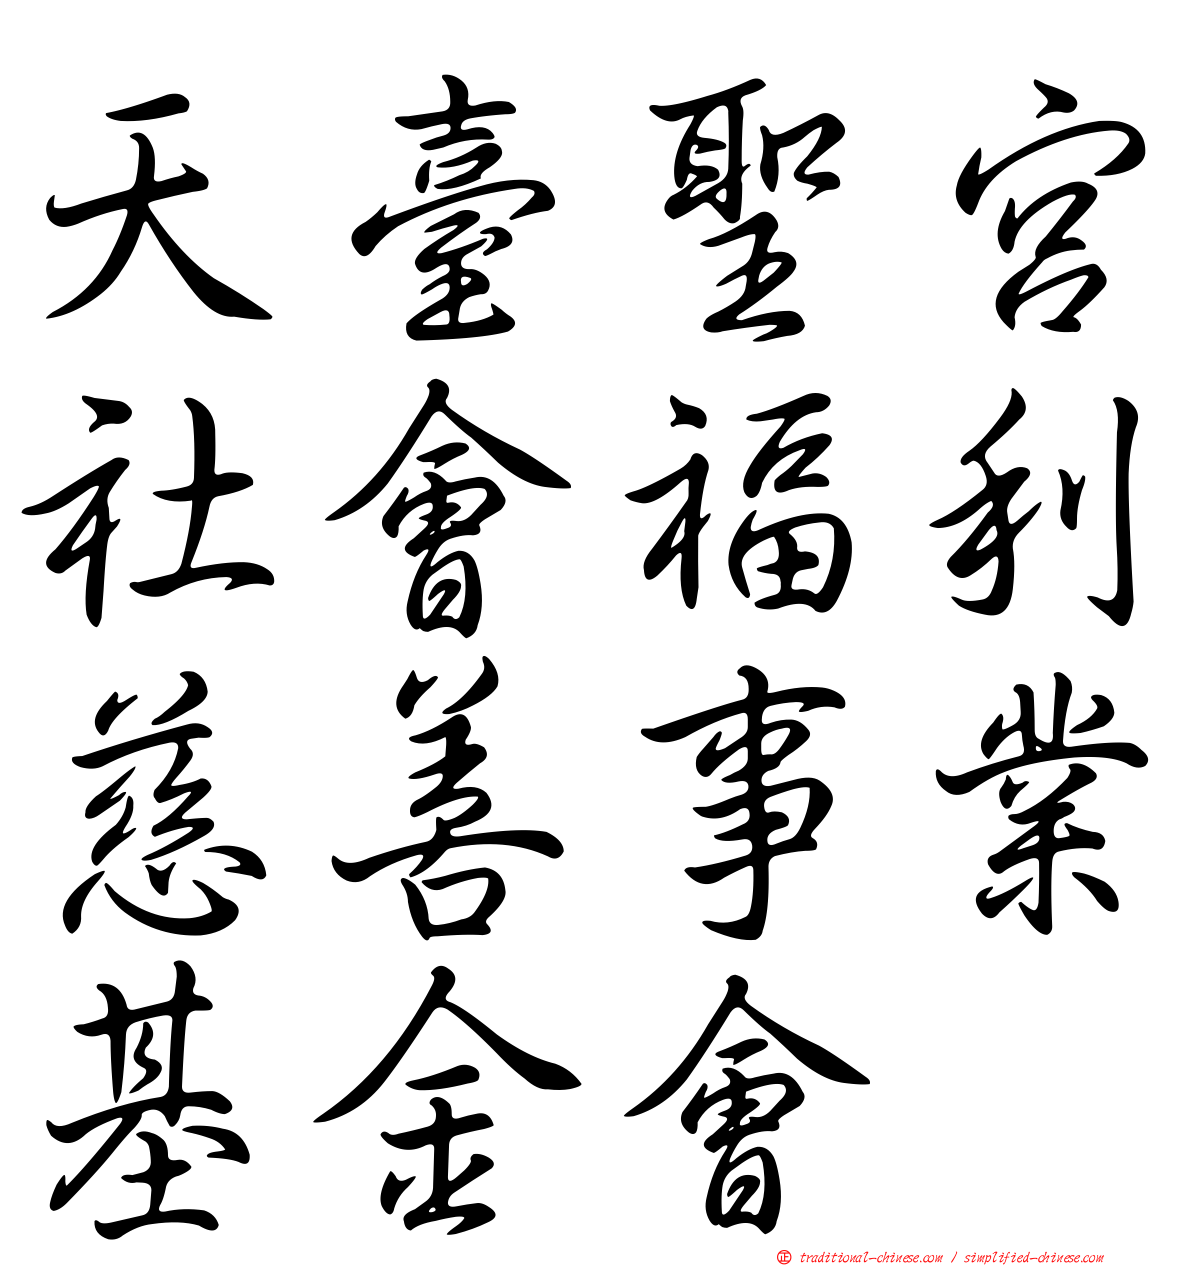 天臺聖宮
社會福利
慈善事業
基金會
正 traditional-chinese.com / simplified-chinese.com